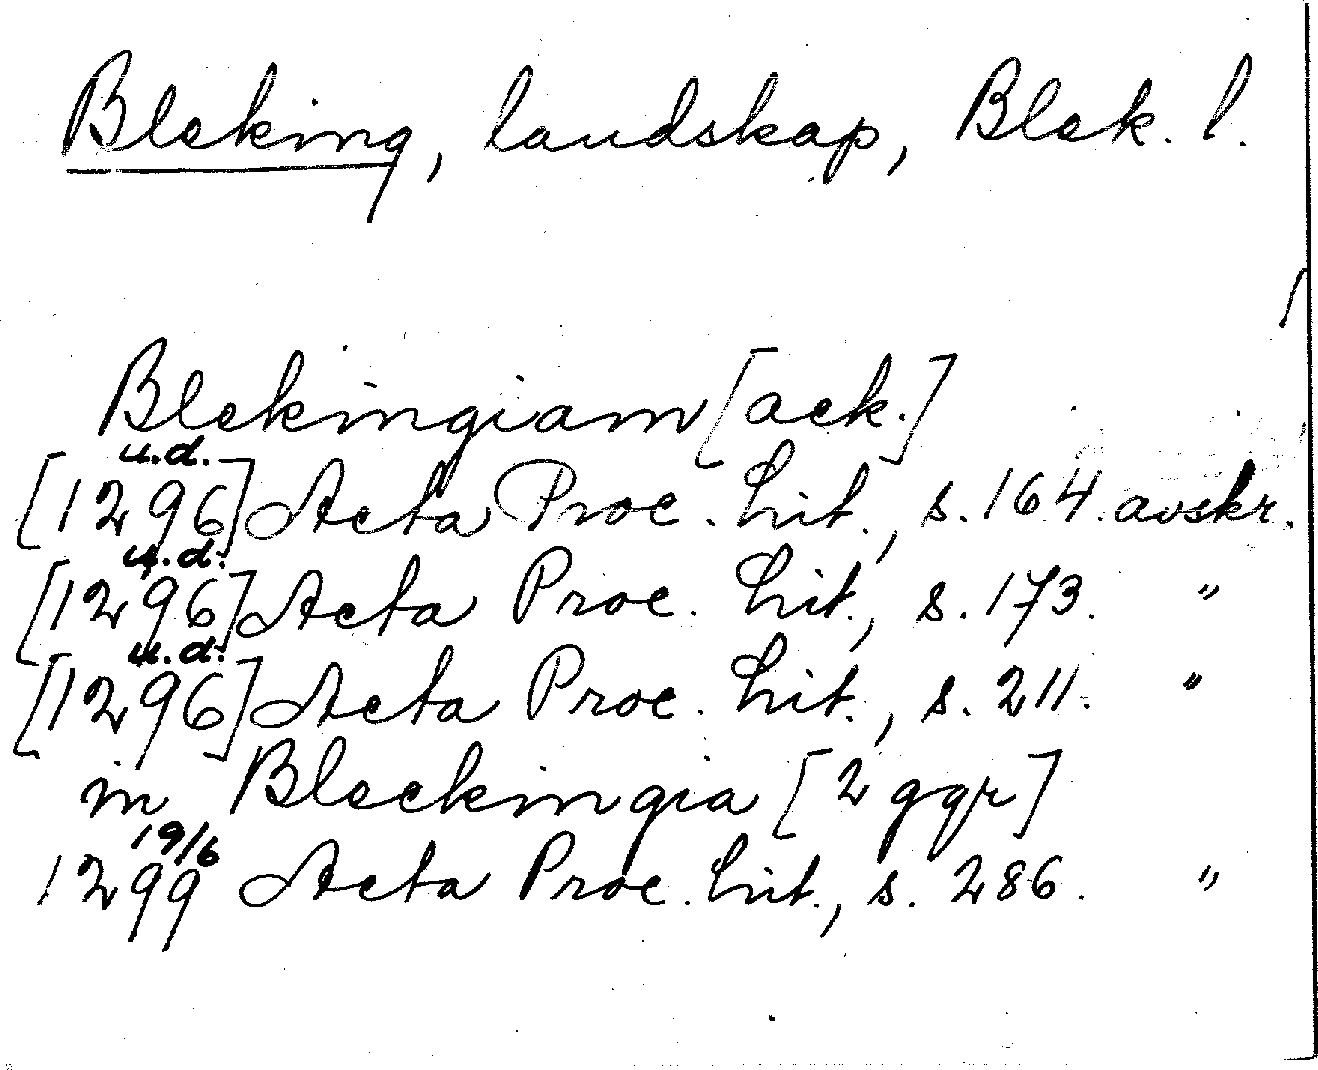 Bleking, landskap, Blek. l.
Blekingiam [ack.]
u.d.
[1296] Acta Proc. Lit., s. 164. avskr.
u.d.
[1296] Acta Proc. Lit., s. 173. "
u.d.
[1296] Acta Proc. Lit., s. 211. "
in Bleckingia [2 ggr]
19/6
1299 Acta Proc. Lit., s. 286. "